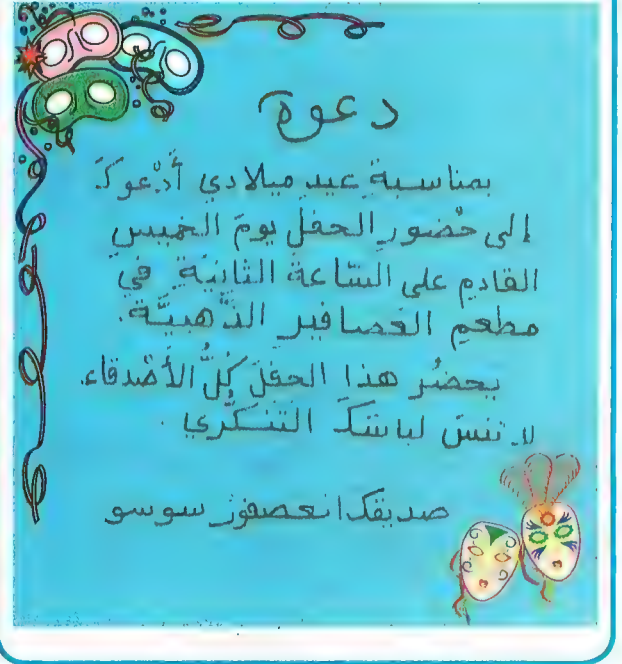 دعوة
بمناسبةِ عيدِ ميلادي أَدْعوكَ
إلى حُضورِ الحفلِ يومَ الخميسِ
القادمِ على السّاعةِ الثّانيةِ في
مطعمِ العَصافيرِ الذّهبيَّة.
يحضُر هذا الحفلَ كُلُّ الأَصْدقاء.
لا تنسَ لباسَكَ التّنَكّري.
صديقكَ العصفور سوسو